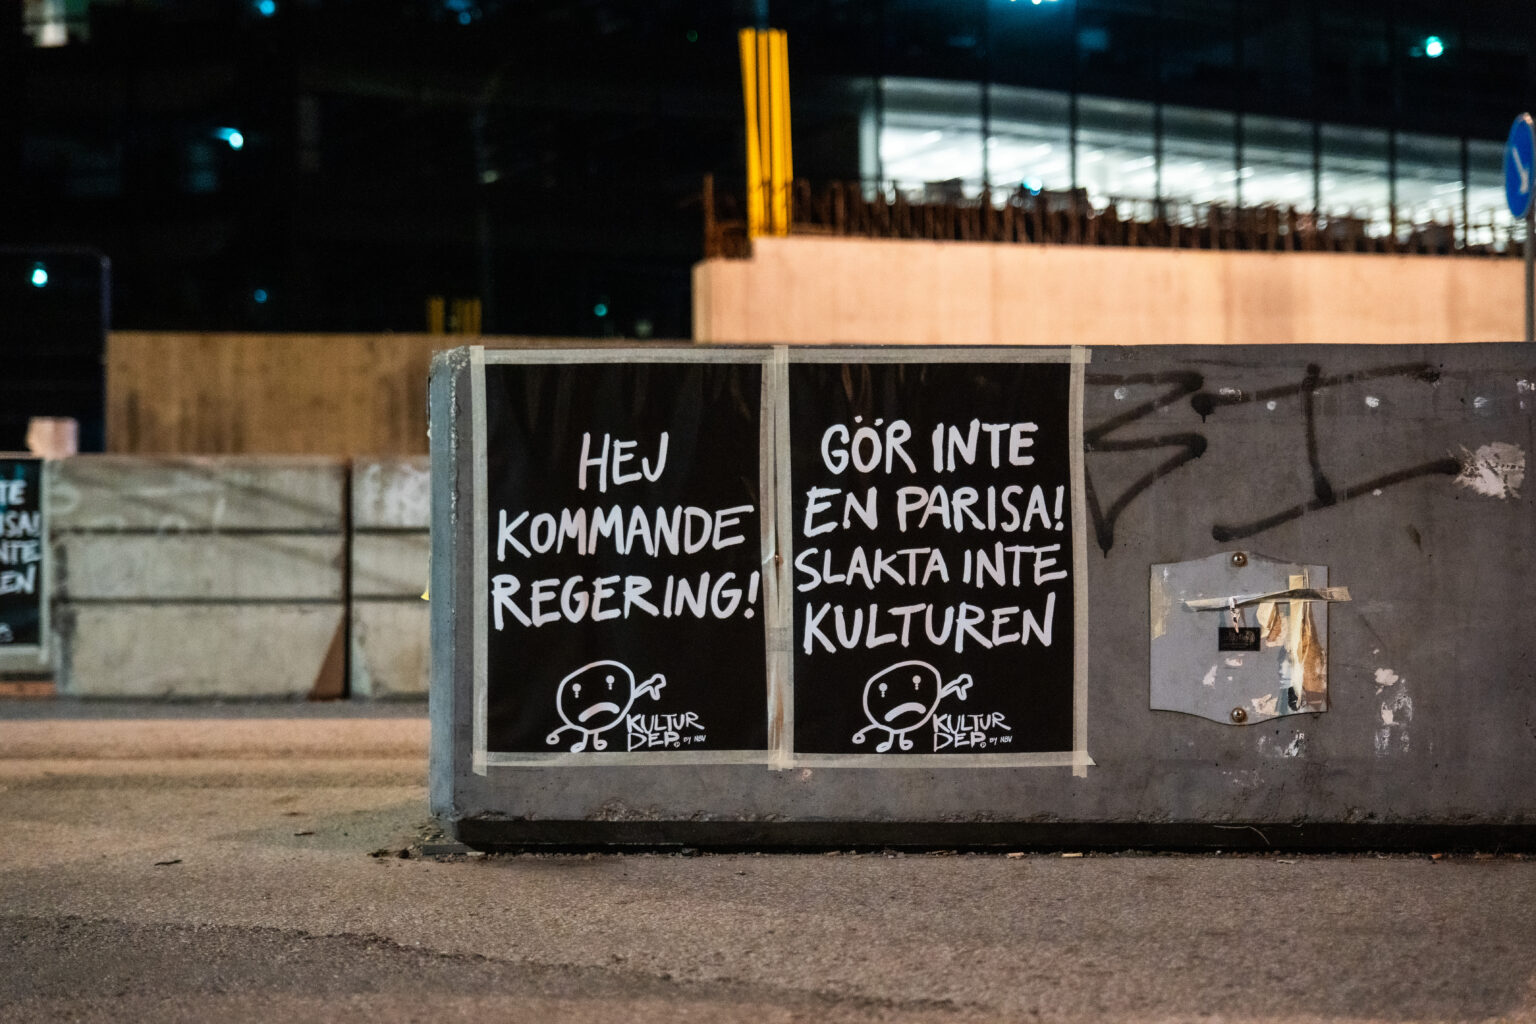 HEJ
KOMMANDE
REGERING!
KULTUR
DEP.
BY NBV
GÖR INTE
EN PARISA!
SLAKTA INTE
KULTUREN
KULTUR
DEP.
BY NBV
TE
ISA!
NTE
EN